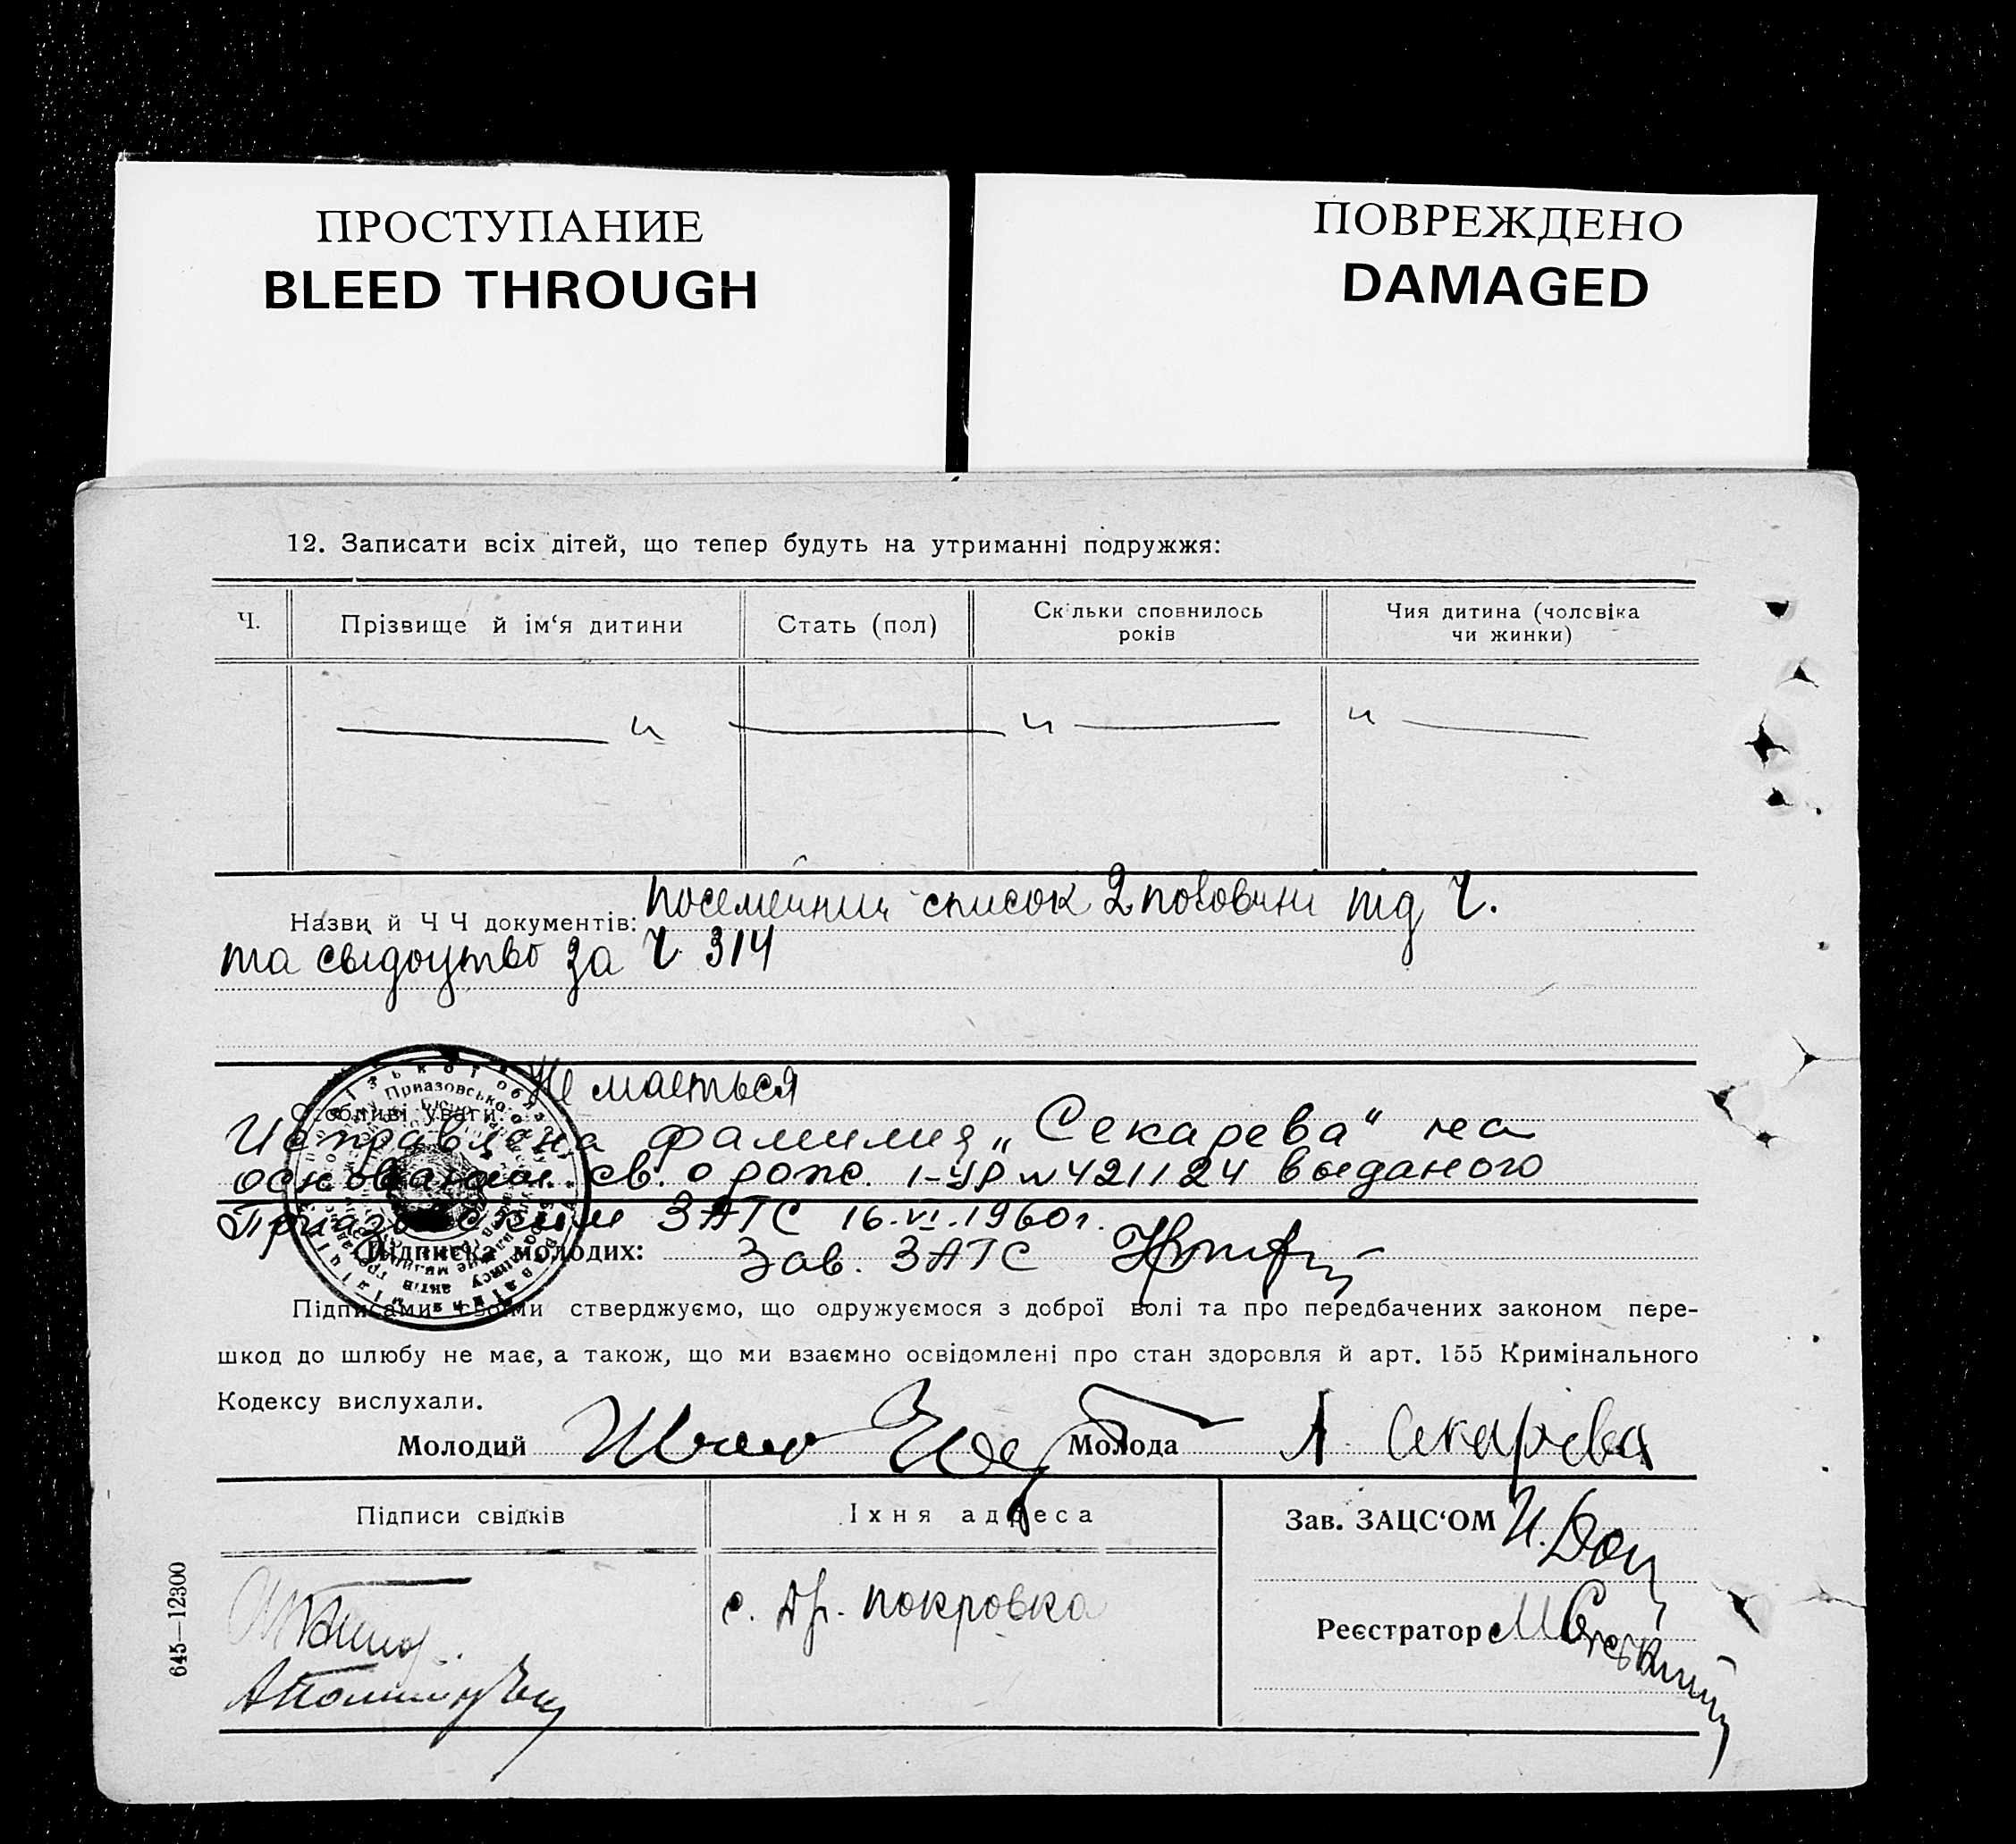 ПРОСТУПАНИЕ
BLEED THROUGH
ПОВРЕЖДЕНО
DAMAGED
12. Записати всіх дітей, що тепер будуть на утриманні подружжя:
Ч.
Прізвище й ім‘я дитини
Стать (пол)
Скільки сповнилось
років
Чия дитина (чоловіка
чи жинки)
— „ — „ — „ —
Назви й Ч Ч документів: посемейний список 2 половині під Ч.
та свідоцтво за Ч 314
Особливі уваги: Не мається
Исправлена фамилия „Секарева" на
основании св. о рожс. 1-УР № 421124 выданого
Приазовским ЗАГС 16.VI.1960г.
Підписка молодих: Зав. ЗАГС
Підписами своїми стверджуємо, що одружуємося з доброї волі та про передбачених законом пере-
шкод до шлюбу не має, а також, що ми взаємно освідомлені про стан здоровля й арт. 155 Кримінального
Кодексу вислухали.
Молодий
Молода Л Секарева
Підписи свідків
Іхня адреса
с. Др. Покровка
Зав. ЗАЦС‘ОМ
Реєстратор
645—12300